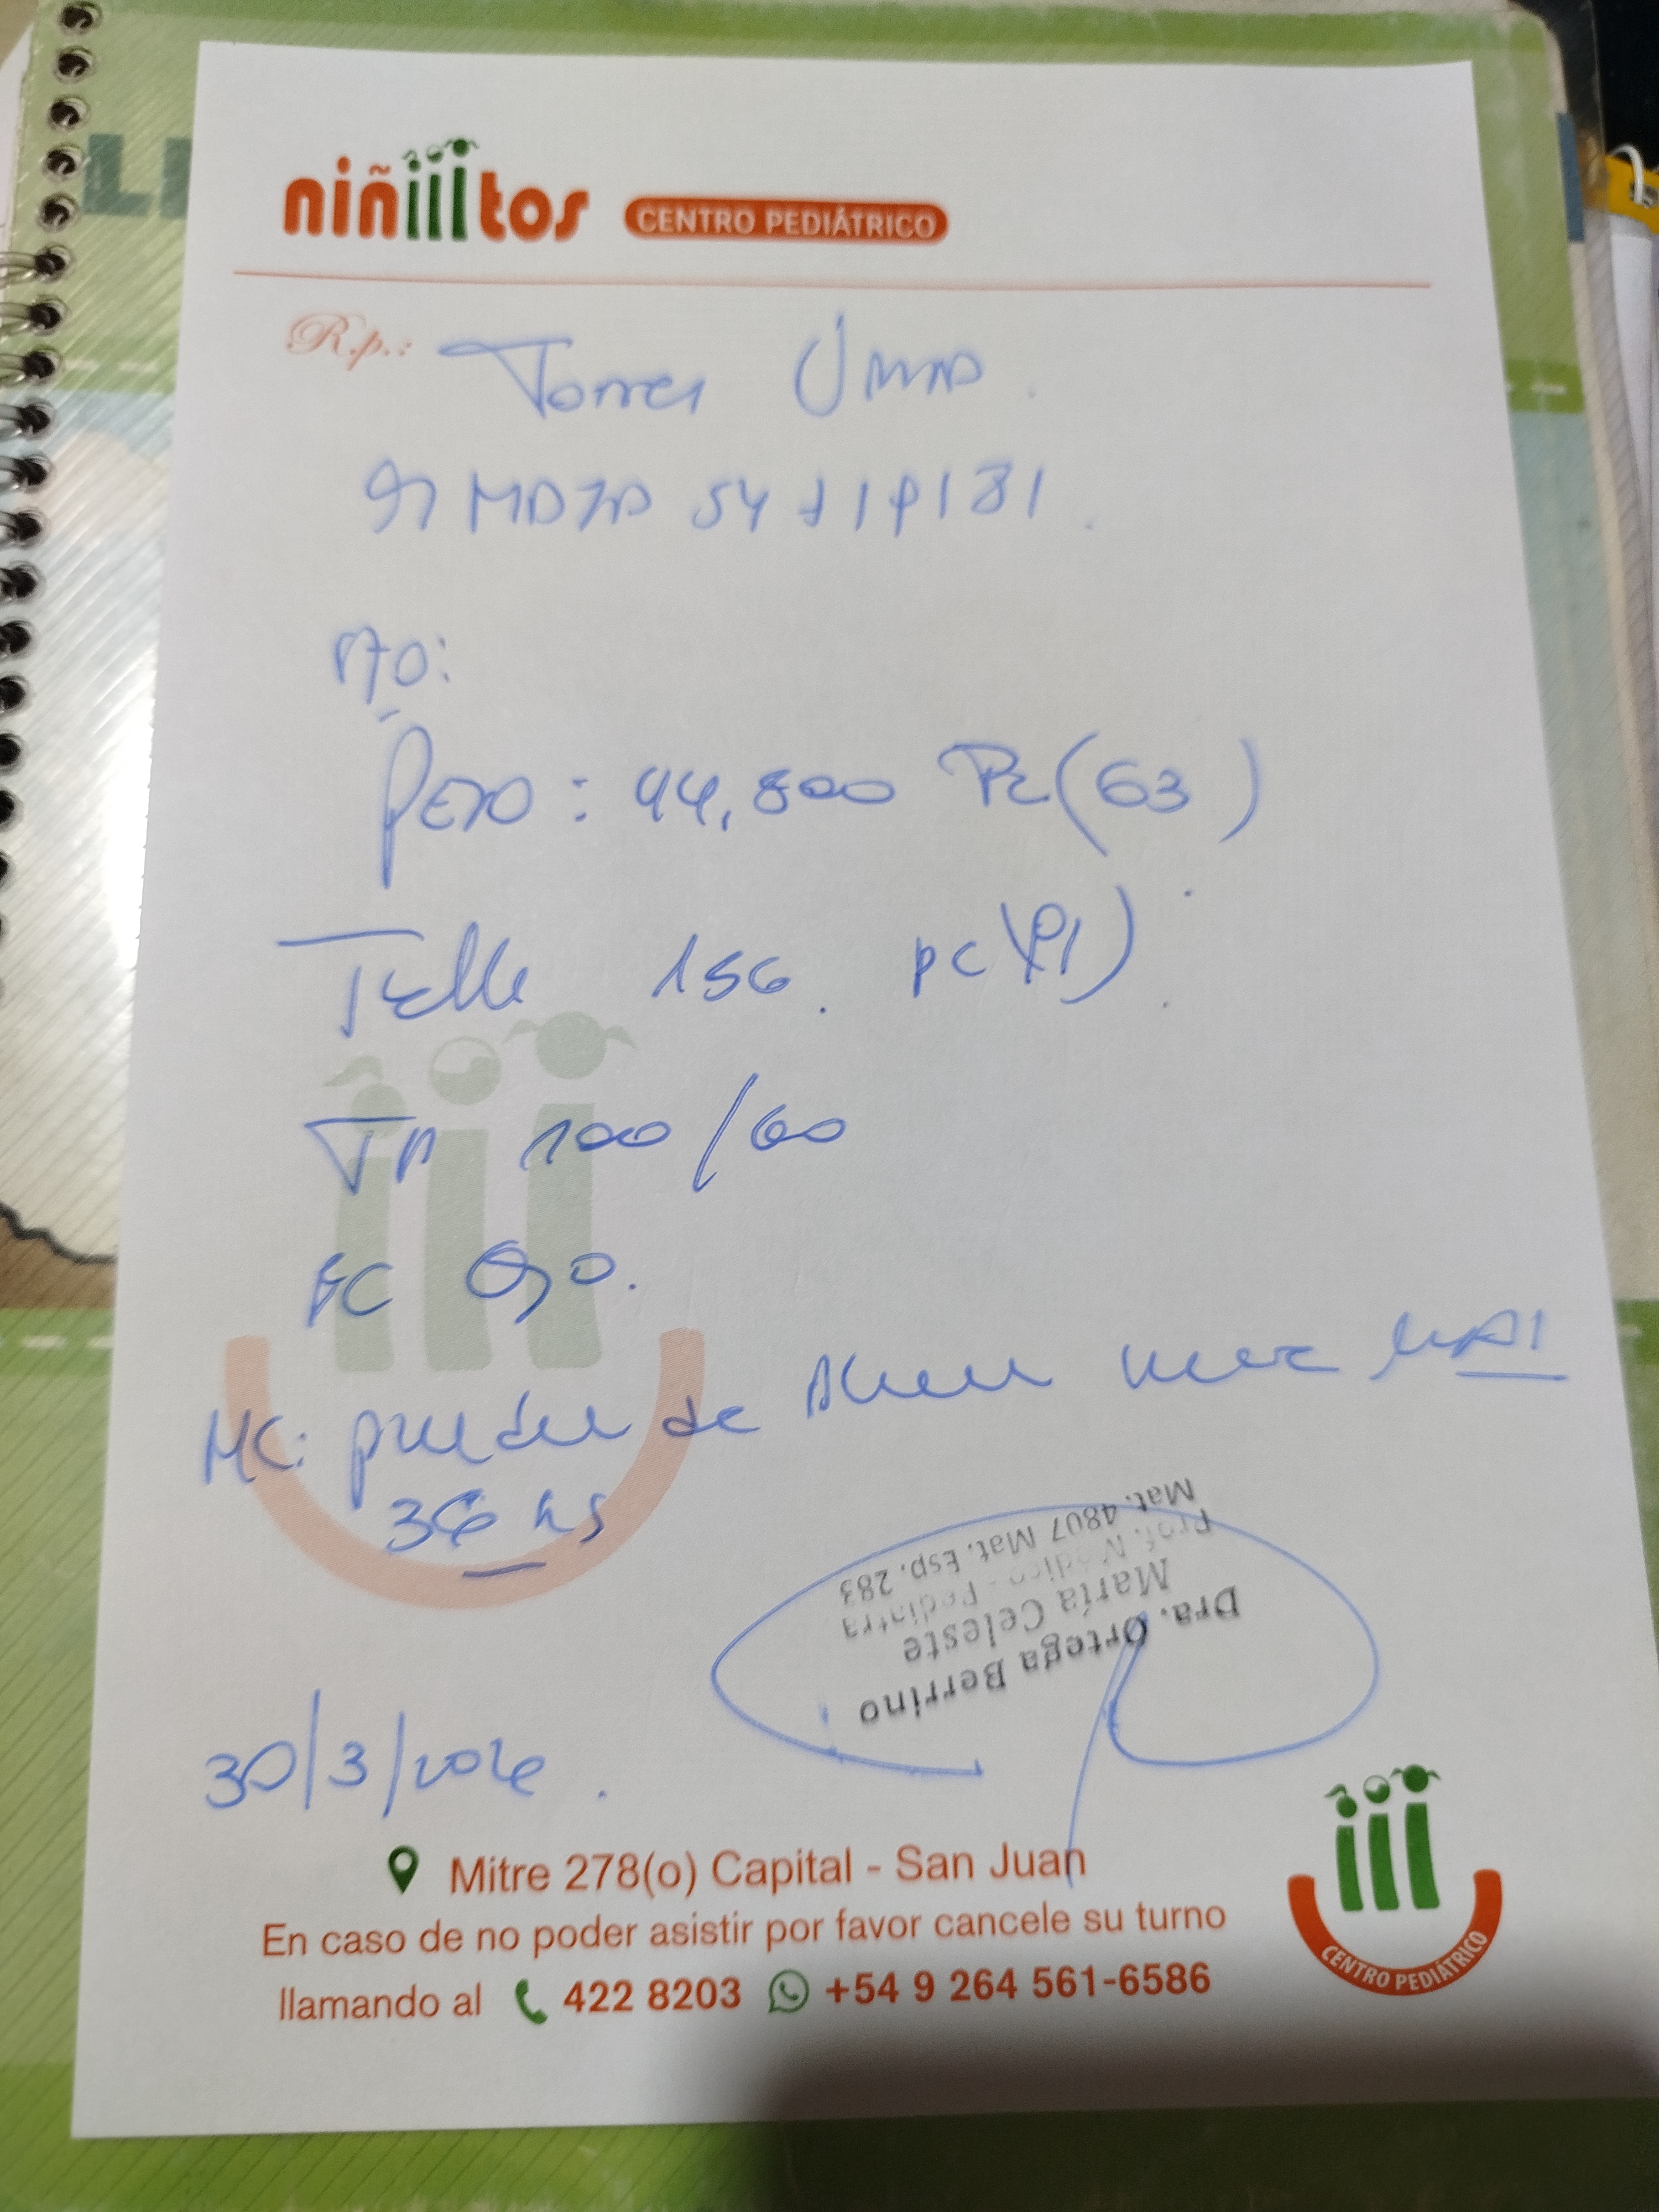 niñiiitos CENTRO PEDIÁTRICO
R.p.: Torres
Peso: 44,800 Pc (63)
Talle 156. pc (91)
TA 100/60
FC 90.
MC: de
36 hs
Dra. Ortega Berrino
María Celeste
Prof. Médico - Pediatra
Mat. 4807 Mat. Esp. 283
30/3/2026.
Mitre 278(o) Capital - San Juan
En caso de no poder asistir por favor cancele su turno
llamando al 422 8203 +54 9 264 561-6586
CENTRO PEDIÁTRICO